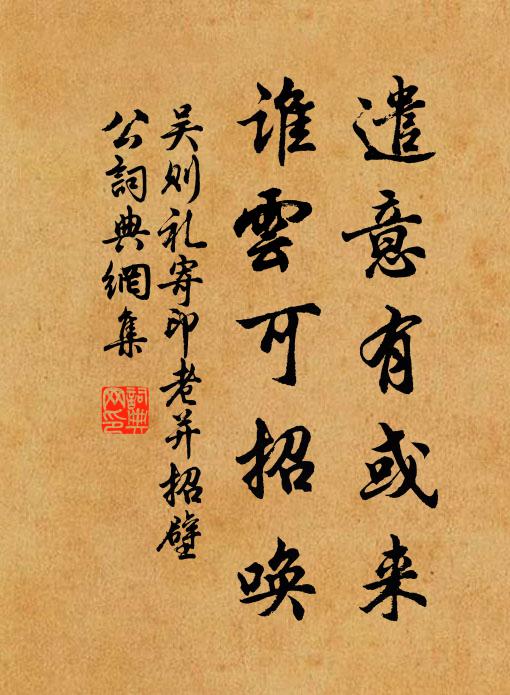 遣意有或来
谁雲可招唤
吴则礼寄印老并招壁
公詞典網集
詞典网印